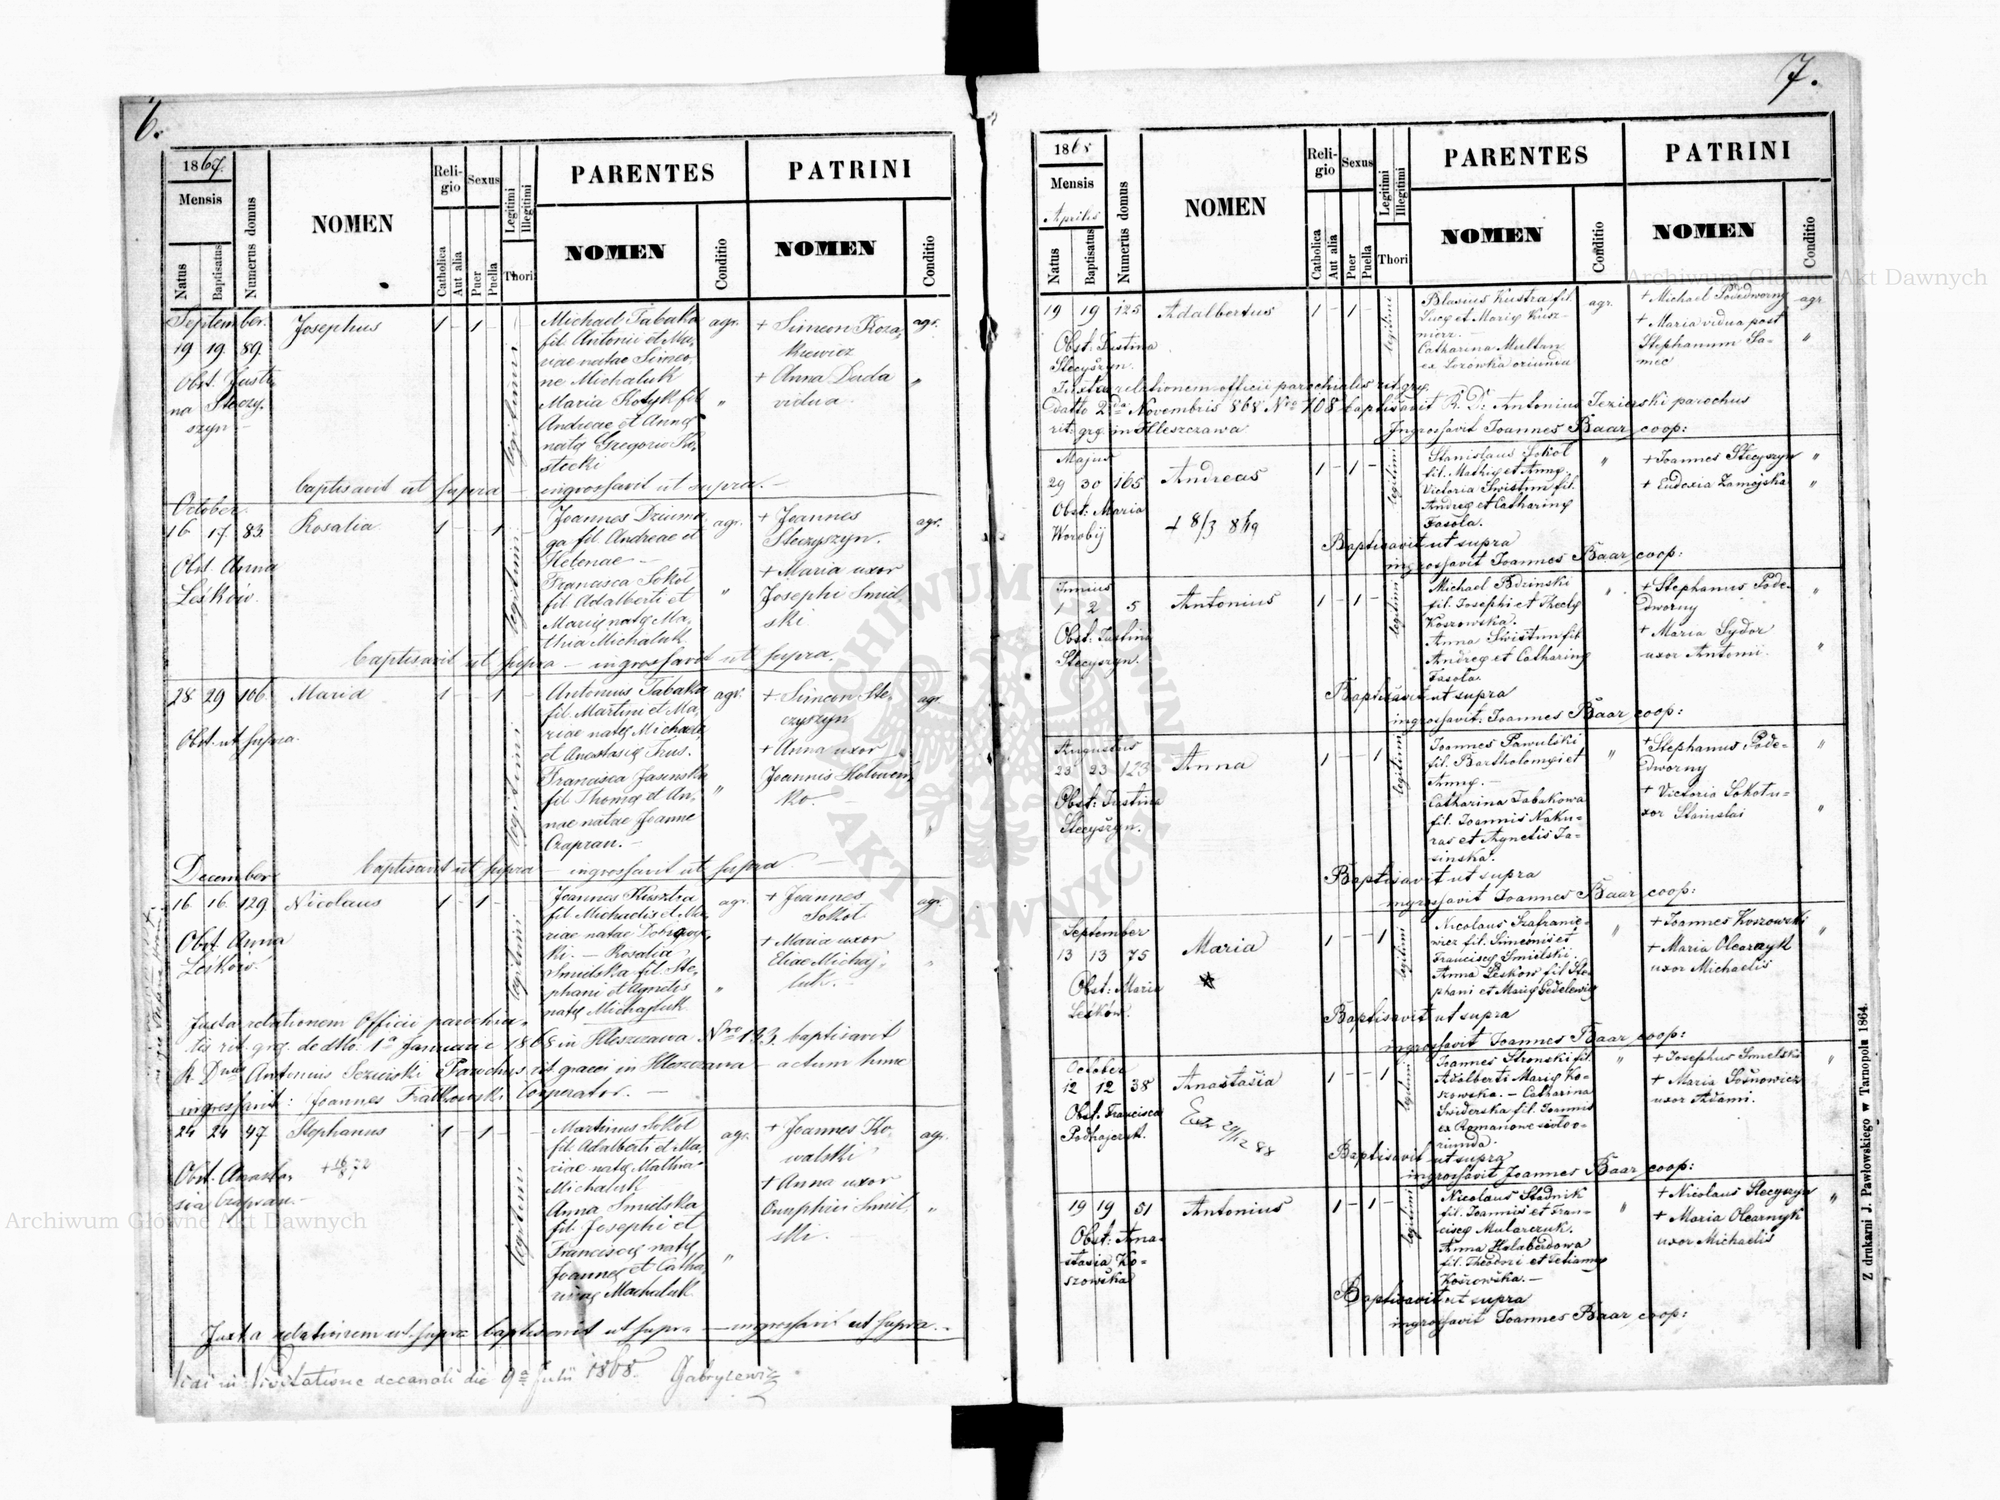 6.
1867.
Mensis
Natus
Baptisatus
Numerus domus
NOMEN
Religio
Catholica
Aut alia
Sexus
Puer
Puella
Legitimi
Illegitimi
Thori
PARENTES
NOMEN
Conditio
PATRINI
NOMEN
Conditio
September.
19 19 89.
Obst. Justi-
na Steczy-
szyn
Josephus
1 - 1 -
legitimi
Michael Tabaka
fil. Antonii et Ma-
riae natae Simeo-
ne Michaluk
Maria Kotyk fil.
Andreae et Annę
natę Gregorio
agr.
"
+ Simeon Koza-
kiewicz
+ Anna Duda
vidua.
agr.
"
baptisavit ut supra - ingrossavit ut supra. -
October
16 17 83.
Obst. Anna
Leśków.
Rosalia
1 - - 1
legitimi
Joannes Dziuma-
ga fil. Andreae et
Helenae -
Francisca Sokol
fil. Adalberti et
Marię natę Ma-
thia Michaluk
agr.
"
+ Joannes
Steczyszyn.
+ Maria uxor
Josephi Smiel-
ski
agr.
baptisavit ut supra - ingrossavit ut supra.
28 29 106
Obst. ut supra.
Maria
1 - - 1
legitimi
Antonius Tabaka
fil. Martini et Ma-
riae natę Michaele
et Anastasię Trus.
Francisca Jasinska
fil. Thomę et An-
nae natae Joanne
Czapran. -
agr.
"
+ Simeon Ste-
czyszyn
+ Anna uxor
Joannis Holowen-
ko. -
agr.
"
baptisavit ut supra - ingrossavit ut supra -
December
16 16 129
Obst. Anna
Leśków.
Nicolaus
1 - 1 -
legitimi
Joannes Kusztra
fil. Michaelis et Ma-
riae natae
ki. - Rosalia
Smielska fil. Ste-
phani et Agnetis
natę Michajluk
agr.
"
+ Joannes
Sokol
+ Maria uxor
Eliae Michaj-
luk.
agr.
"
Juxta relationem Officii parochia-
lis rit. grę. de dtto. 1a Januarii 1868 in Hleszczawa Nro 133. baptisavit
R. Dnus Antonius Jezierski Parochus rit. graeci in Hleszczawa - actum hunc
ingrossavit: Joannes Frątkowski Cooperator. -
24 24 47.
Obst. Anasta-
sia Czapran. -
Stephanus
1 - 1 -
legitimi
Martinus Sokol
fil. Adalberti et Ma-
riae natę Mathia
Michaluk
Anna Smielska
fil. Josephi et
Franciscę natę
Joanne et Catha-
rinę Machaluk
agr.
"
+ Joannes Ko-
walski
+ Anna uxor
Onuphrii Smiel-
ski.
agr.
"
Juxta relationem ut supra baptisavit ut supra - ingrossavit ut supra. -
Vidi in Visitatione decanali die 9a Julii 1868. Gabrysewicz
7.
1868
Mensis
Aprilis
Natus
Baptisatus
Numerus domus
NOMEN
Religio
Catholica
Aut alia
Sexus
Puer
Puella
Legitimi
Illegitimi
Thori
PARENTES
NOMEN
Conditio
PATRINI
NOMEN
Conditio
19 19 125
Obst: Justina
Stecyszyn.
Adalbertus
1 - 1 -
legitimi
Blasius Kustra fil.
Lucę et Marię Kusz-
nierz. -
Catharina Multan
ex Lozówka oriunda
agr.
+ Michael Podedworny
+ Maria vidua post
Stephanum Sa-
mec
agr.
"
Juxta relationem officii parochialis rit. grę.
datto 2da Novembris 868 Nro 108 baptisavit R. D: Antonius Jezierski parochus
rit: grę: in Hleszczawa
Ingrossavit Joannes Baar coop:
Majus
29 30 165
Obst: Maria
Worobij
Andreas
+ 8/3 8
1 - 1 -
legitimi
Stanislaus Sokol
fil. Mathię et Annę.
Victoria Swistun fil.
Andreę et Catharinę
Fasola.
"
+ Joannes Stecyszyn
+ Eudoxia Zamojska
"
"
Baptisavit ut supra
ingrossavit Joannes Baar coop:
Junius
1 2 5
Obst: Justina
Stecyszyn.
Antonius
1 - 1 -
legitimi
Michael Bdzinski
fil. Josephi et Theclę
Koszowska.
Anna Swistun fil.
Andreę et Catharinę
Fasola.
"
+ Stephanus Pode-
dworny
+ Maria Sydor
uxor Antonii.
"
"
Baptisavit ut supra
ingrossavit: Joannes Baar coop:
Augustus
23 23 123
Obst: Justina
Stecyszyn.
Anna
1 - - 1
legitimi
Joannes Pawulski
fil. Bartholomęi et
Annę. -
Catharina Tabakowa
fil. Joannis Naku-
ras et Agnetis Ja-
sinska.
"
+ Stephanus Pode-
dworny
+ Victoria Sokol u-
xor Stanislai
"
"
Baptisavit ut supra
ingrossavit Joannes Baar coop:
September
13 13 75
Obst: Maria
Leśków.
Maria
1 - - 1
legitimi
Nicolaus Szafranie-
wicz fil. Simeonis et
Franciscę Smielski.
Anna Leskow fil. Ste-
phani et Marię Gedelewicz
"
+ Joannes Koszowski
+ Maria Olearczyk
uxor Michaelis
"
Baptisavit ut supra
ingrossavit Joannes Baar coop:
October
12 12 38
Obst. Francisca
Podhajczuk.
Anastasia
Ex 29/12 88
1 - - 1
legitimi
Joannes Stronski fil.
Adalberti Marię Ko-
szowska. - Catharina
Swiderska fil. Joannis
ex Romanowe sioło o-
riunda.
"
+ Josephus Smielski
+ Maria Sosnowicz
uxor Adami.
"
Baptisavit ut supra
ingrossavit Joannes Baar coop:
19 19 51
Obst: Ana-
stasia Ko-
szowska
Antonius
1 - 1 -
legitimi
Nicolaus Stadnik
fil. Joannis et Fran-
ciscę Mularczuk.
Anna Halaberdowa
fil. Theodori et Tetiannę
Koszowska. -
"
+ Nicolaus Stecyszyn
+ Maria Olearnyk
uxor Michaelis
"
Baptisavit ut supra
ingrossavit Joannes Baar coop:
Z drukarni J. Pawłowskiego w Tarnopolu 1864.
Archiwum Główne Akt Dawnych
Archiwum Główne Akt Dawnych
ARCHIWUM GŁÓWNE
AKT DAWNYCH